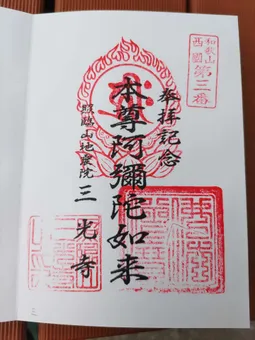 和歌山
西國
第三番
奉拝記念
本尊阿彌陀如来
照臨山地蔵院
三光寺
三